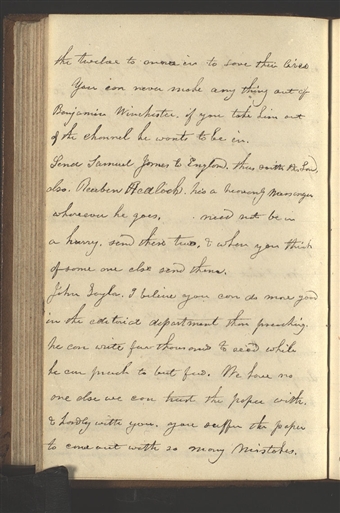 the twelve to move in to save their lives
You can never make any thing out of
Benjamin Winchester. if you take him out
of the channel he wants to be in.
Send Samuel James to England. thus saith the Lord
also. Reuben Hedlock. he is a heavenly Messenger
wherever he goes. need not be in
a hurry. send these two. & when you think
of some one else send them.
John Taylor. I believe you can do more good
in the editorial department than preaching.
he can write for thousands to read while
he can preach to but few. We have no
one else we can trust the paper with.
& hardly with you. you suffer the paper
to come out with so many Mistakes.